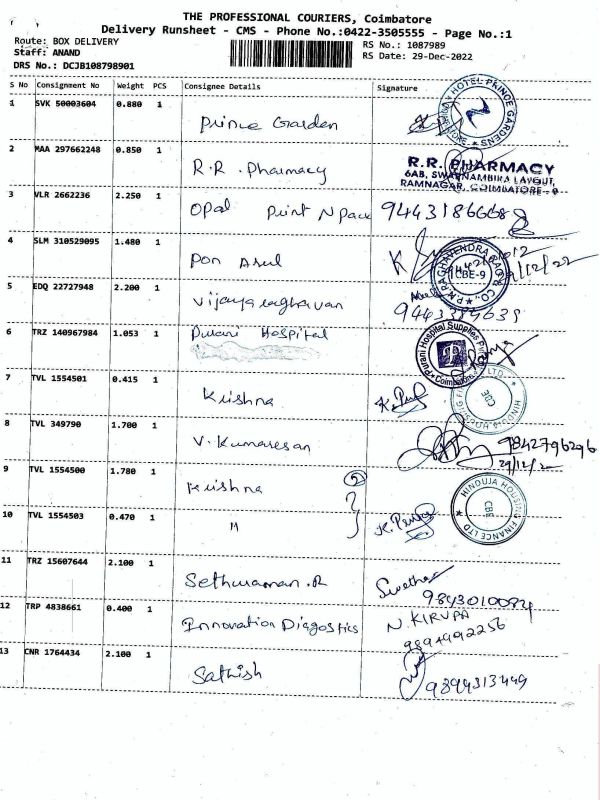 THE PROFESSIONAL COURIERS, Coimbatore
Delivery Runsheet - CMS - Phone No.:0422-3505555 - Page No.:1
Route: BOX DELIVERY
RS No.: 1087989
Staff: ANAND
RS Date: 29-Dec-2022
DRS No.: DCJB108798901
S No Consignment No Weight PCS Consignee Details Signature
1 SVK 50003604 0.880 1 Prince Garden
HOTEL PRINCE GARDENS
2 MAA 297662248 0.850 1 R.R. Pharmacy
R.R. PHARMACY
6AB, SWARNAMBIKA LAYOUT,
RAMNAGAR, COIMBATORE - 9
3 VLR 2662236 2.250 1 Opal Print N Pack
4 SLM 310529095 1.480 1 Pon Arul
CBE-9
5 EDQ 22727948 2.200 1 Vijayaraghavan
6 TRZ 140967984 1.053 1 Purani Hospital
Purani Hospital Supplies
Coimbatore
7 TVL 1554501 0.415 1 Krishna
CBE
8 TVL 349790 1.700 1 V. Kumaresan 9842796296
9 TVL 1554500 1.780 1 Krishna
HINDUJA HOUSING FINANCE LTD
CBE
10 TVL 1554503 0.470 1 "
11 TRZ 15607644 2.100 1 Sethuraman.R Swetha
12 TRP 4838661 0.400 1 Innovation Diagostics N. KIRUPA
9894992256
13 CNR 1764434 2.100 1 Sathish 9894313449